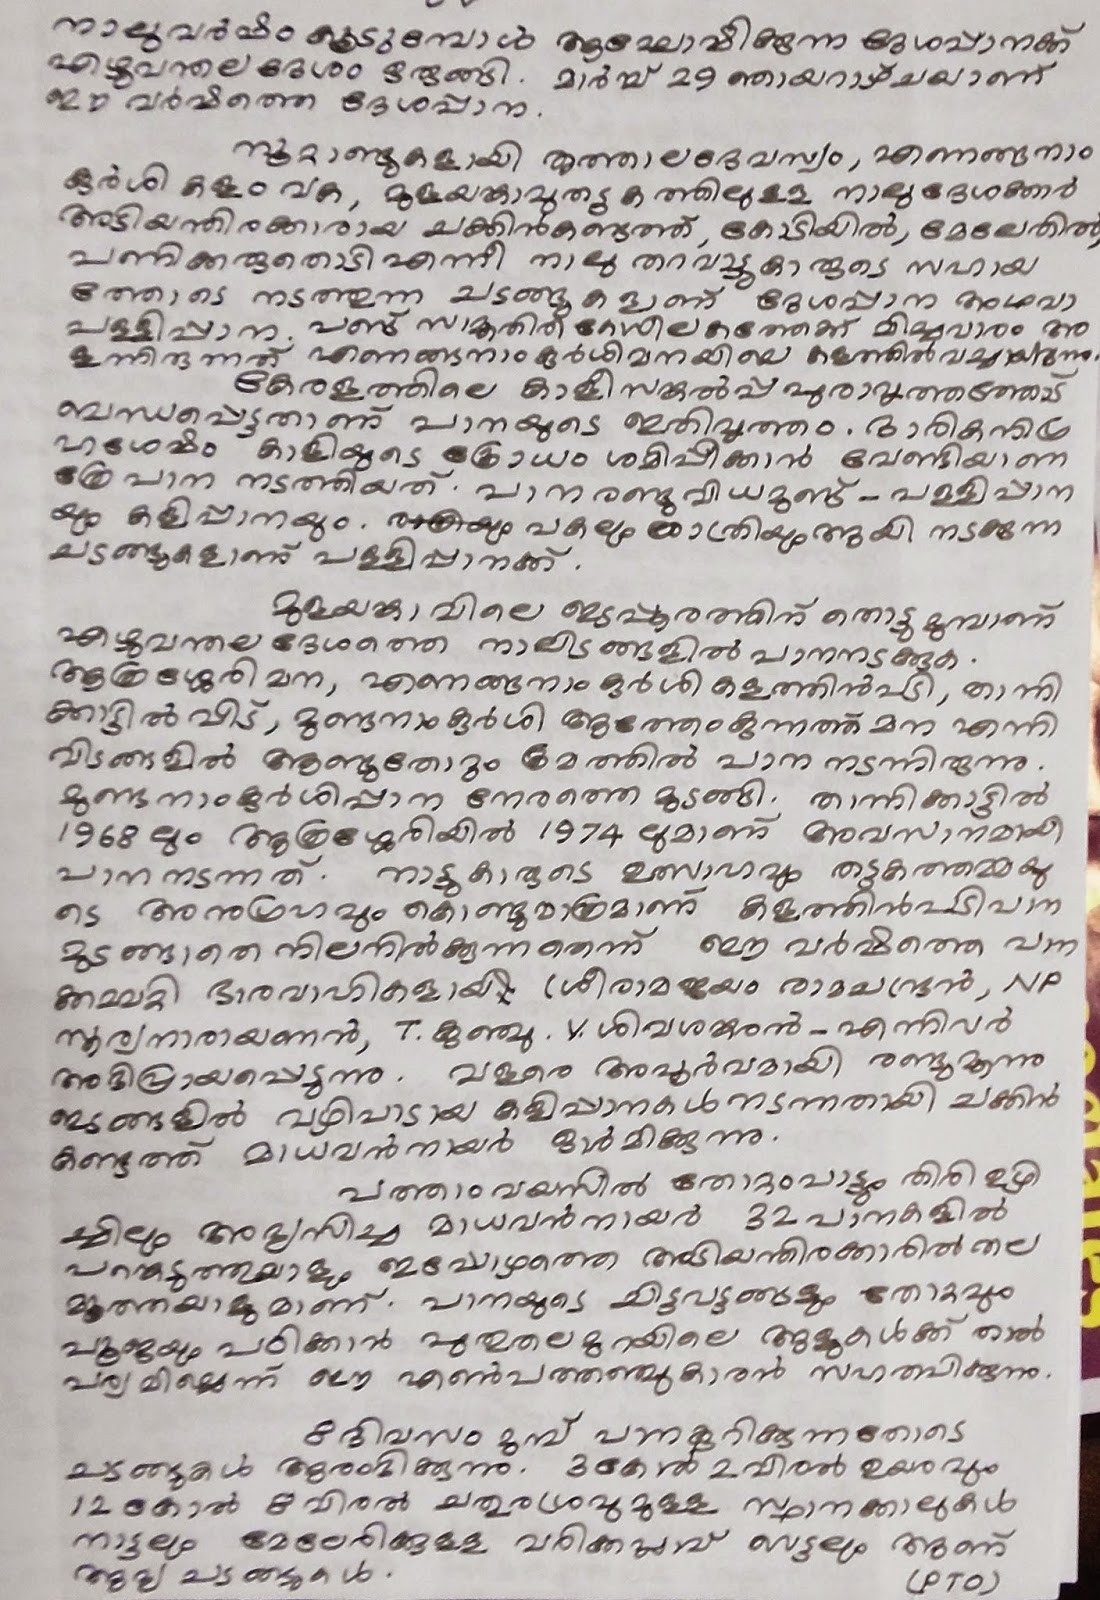 നാലുവർഷം കൂടുമ്പോൾ ആഘോഷിക്കുന്ന ദേശപ്പാനക്ക്
എഴുവന്തലദേശം ഒരുങ്ങി. മാർച്ച് 29 ഞായറാഴ്ചയാണ്
ഈ വർഷത്തെ ദേശപ്പാന.
നൂറ്റാണ്ടുകളായി തൃത്താലദേവസ്വം, ഏണങ്ങനാം
കുർശി കളം വക, മുളയങ്കാവുതട്ടകത്തിലുള്ള നാലുദേശക്കാർ
അടിയന്തിരക്കാരായ ചക്കിൻകണ്ടത്ത്, കോടിയിൽ, മേലേതിൽ,
പണിക്കരുതൊടി എന്നീ നാലു തറവാട്ടുകാരുടെ സഹായ
ത്തോടെ നടത്തുന്ന ചടങ്ങുകളാണ് ദേശപ്പാന അഥവാ
പള്ളിപ്പാന. പണ്ട് മിച്ചവാരം അ
ളന്നിരുന്നത് ഏണങ്ങനാംകുർശിമനയിലെ കളത്തിൽവച്ചായിരുന്നു.
കേരളത്തിലെ കാളീസങ്കൽപ്പപുരാവൃത്തത്തോട്
ബന്ധപ്പെട്ടതാണ് പാനയുടെ ഇതിവൃത്തം. ദാരികനിഗ്ര
ഹശേഷം കാളിയുടെ ക്രോധം ശമിപ്പിക്കാൻ വേണ്ടിയാണ
ത്രേ പാന നടത്തിയത്. പാന രണ്ടുവിധമുണ്ട് - പള്ളിപ്പാന
യും കളിപ്പാനയും. പകലും രാത്രിയും ആയി നടക്കുന്ന
ചടങ്ങുകളാണ് പള്ളിപ്പാനക്ക്.
മുളയങ്കാവിലെ ഇടപ്പൂരത്തിന് തൊട്ടുമുമ്പാണ്
എഴുവന്തലദേശത്തെ നാലിടങ്ങളിൽ പാനനടക്കുക.
ആത്രശ്ശേരിമന, ഏണങ്ങനാംകുർശി കളത്തിൻപടി, താന്നി
ക്കാട്ടിൽവീട്, മുണ്ടനാംകുർശി ആത്തേംകുന്നത്ത് മന എന്നി
വിടങ്ങളിൽ ആണ്ടുതോറും ക്രമത്തിൽ പാന നടന്നിരുന്നു.
മുണ്ടനാംകുർശിപ്പാന നേരത്തെ മുടങ്ങി. താന്നിക്കാട്ടിൽ
1968 ലും ആത്രശ്ശേരിയിൽ 1974 ലുമാണ് അവസാനമായി
പാനനടന്നത്. നാട്ടുകാരുടെ ഉത്സാഹവും തട്ടകത്തമ്മയു
ടെ അനുഗ്രഹവും കൊണ്ടുമാത്രമാണ് കളത്തിൻപടിപാന
മുടങ്ങാതെ നിലനിൽക്കുന്നതെന്ന് ഈ വർഷത്തെ പാന
ക്കമ്മറ്റി ഭാരവാഹികളായ ശ്രീരാമജയം രാമചന്ദ്രൻ, NP
സൂര്യനാരായണൻ, T. കുഞ്ചു. V. ശിവശങ്കരൻ - എന്നിവർ
അഭിപ്രായപ്പെടുന്നു. വളരെ അപൂർവമായി രണ്ടുമൂന്നു
ഇടങ്ങളിൽ വഴിപാടായ കളിപ്പാനകൾ നടന്നതായി ചക്കിൻ
കണ്ടത്ത് മാധവൻനായർ ഓർമിക്കുന്നു.
പത്താംവയസിൽ തോറ്റംപാട്ടും തിരിഉഴി
ച്ചിലും അഭ്യസിച്ച മാധവൻനായർ 32 പാനകളിൽ
പങ്കെടുത്തയാളും ഇപ്പോഴത്തെ അടിയന്തിരക്കാരിൽ തല
മൂത്തയാളുമാണ്. പാനയുടെ ചിട്ടവട്ടങ്ങളും തോറ്റവും
പൂജയും പഠിക്കാൻ പുതുതലമുറയിലെ ആളുകൾക്ക് താൽ
പര്യമില്ലെന്ന് ഈ എൺപത്തഞ്ചുകാരൻ സഹതപിക്കുന്നു.
8 ദിവസം മുമ്പ് പാനകുറിക്കുന്നതോടെ
ചടങ്ങുകൾ ആരംഭിക്കുന്നു. 3 കോൽ 2 വിരൽ ഉയരവും
12 കോൽ 8 വിരൽ ചതുരശ്രവുമുള്ള സ്ഥാനക്കാലുകൾ
നാട്ടലും മേലേരിക്കുള്ള വരിക്കപ്ലാവ് വെട്ടലും ആണ്
ആദ്യ ചടങ്ങുകൾ.
(PTO)